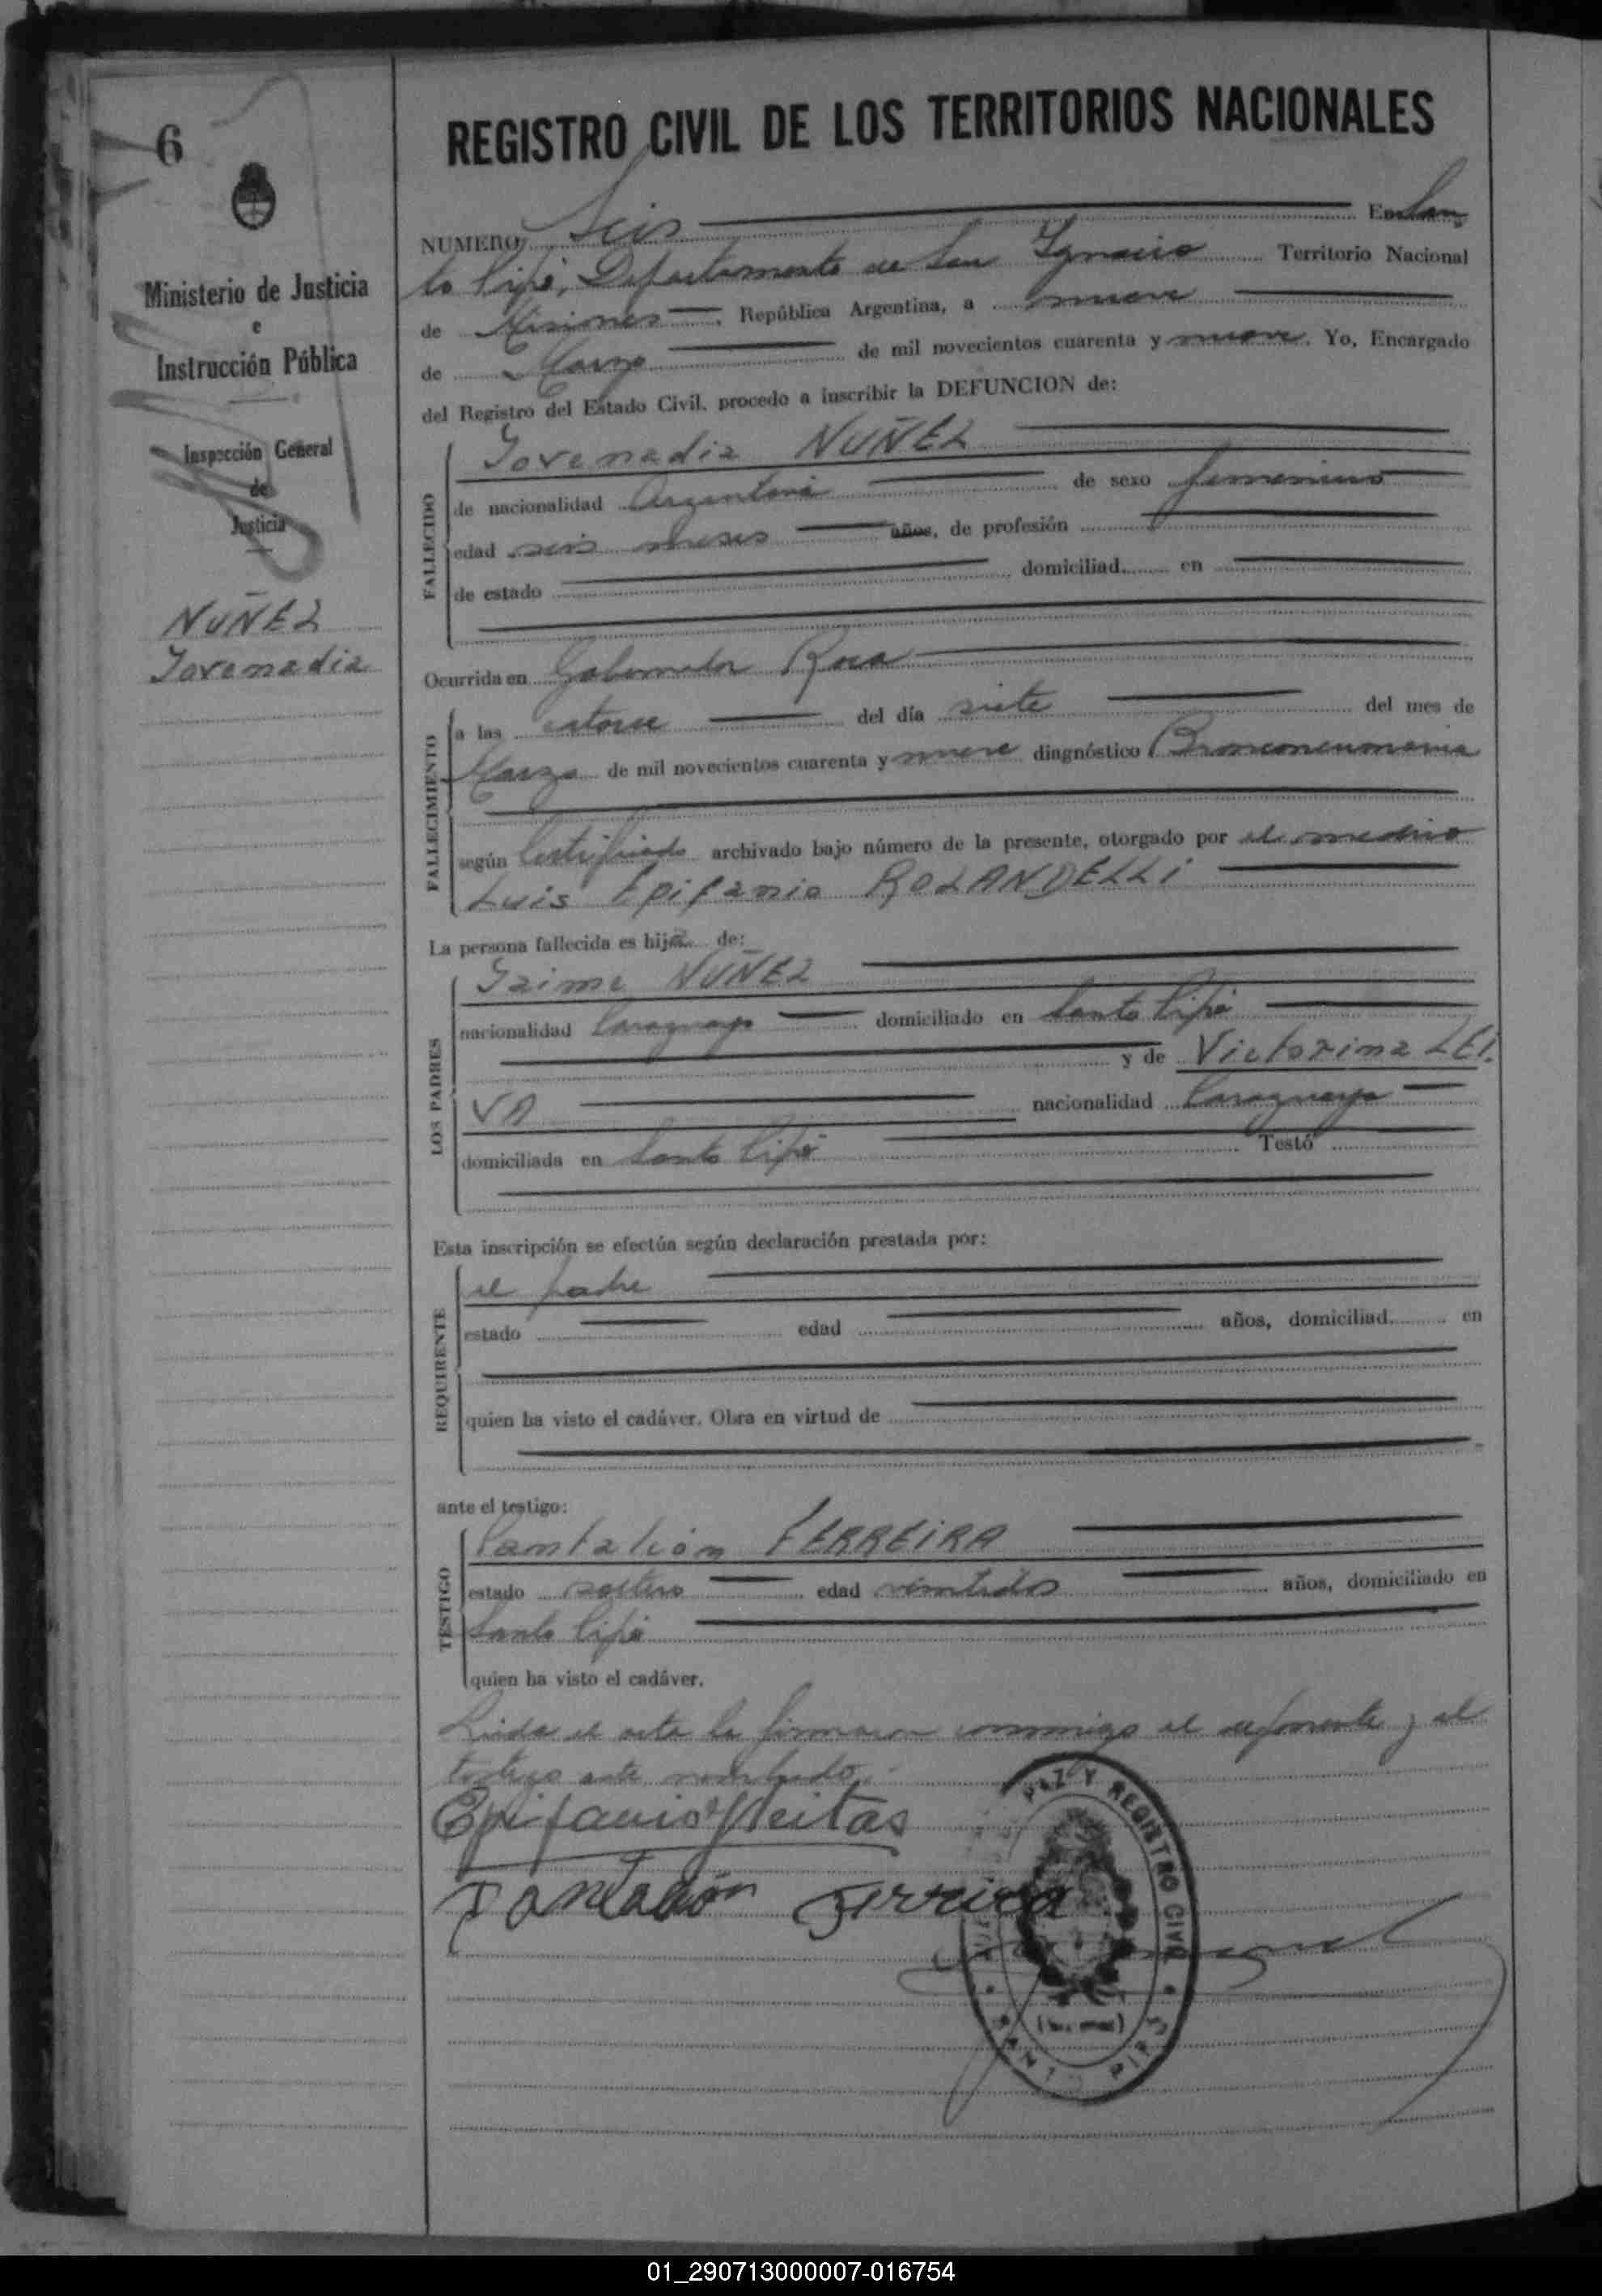 6
Ministerio de Justicia
e
Instrucción Pública
Inspección General
de
Justicia
NUÑEZ
Jovenadia
REGISTRO CIVIL DE LOS TERRITORIOS NACIONALES
NUMERO Seis En San
to Pipó, Departamento de San Ignacio Territorio Nacional
de Misiones, República Argentina, a nueve
de Marzo de mil novecientos cuarenta y nueve. Yo, Encargado
del Registro del Estado Civil, procedo a inscribir la DEFUNCION de:
FALLECIDO
Jovenadia NUÑEZ
de nacionalidad Argentina de sexo femenino
edad seis meses años, de profesión
de estado domiciliad en
Ocurrida en Gobernador Roca
FALLECIMIENTO
a las catorce del día siete del mes de
Marzo de mil novecientos cuarenta y nueve diagnóstico Bronconeumonia
según Certificado archivado bajo número de la presente, otorgado por el medico
Luis Epifanio ROLANDELLI
La persona fallecida es hija de:
LOS PADRES
Jaime NUÑEZ
nacionalidad Paraguayo domiciliado en Santo Pipó
y de Victorina LEI-
VA nacionalidad Paraguaya
domiciliada en Santo Pipó Testó
Esta inscripción se efectúa según declaración prestada por:
REQUIRENTE
el padre
estado edad años, domiciliad en
quien ha visto el cadáver. Obra en virtud de
ante el testigo:
TESTIGO
Pantalión FERREIRA
estado soltero edad veintidos años, domiciliado en
Santo Pipó
quien ha visto el cadáver.
Leida el acta la firmaron conmigo el deponente y el
testigo ante nombrado.
Epifanio Fleitas
Pantalión Ferreira
PAZ Y REGISTRO CIVIL
01_290713000007-016754